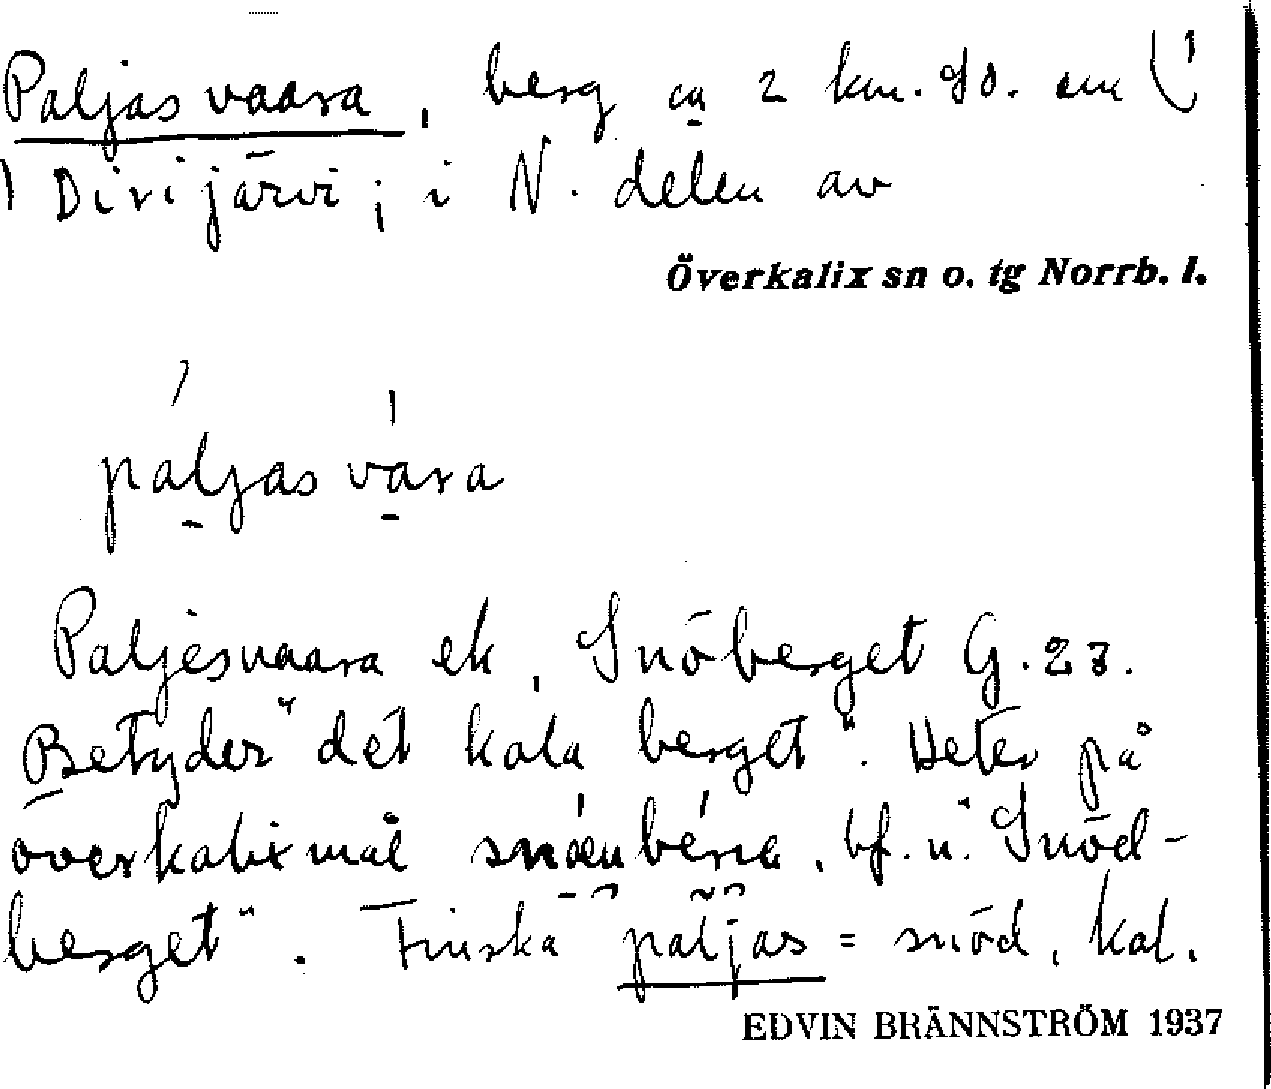 Paljasvaara, berg ca 2 km. SO. om
Divijärvi; i N. delen av
Överkalix sn o. tg Norrb. l.
páljasvára
Paljesvaara ek, Snöberget G. 23.
Betyder "det kala berget". Heter på
överkalixmål , bf. u. "Snöd-
berget". Finska paljas = snöd, kal.
EDVIN BRÄNNSTRÖM 1937